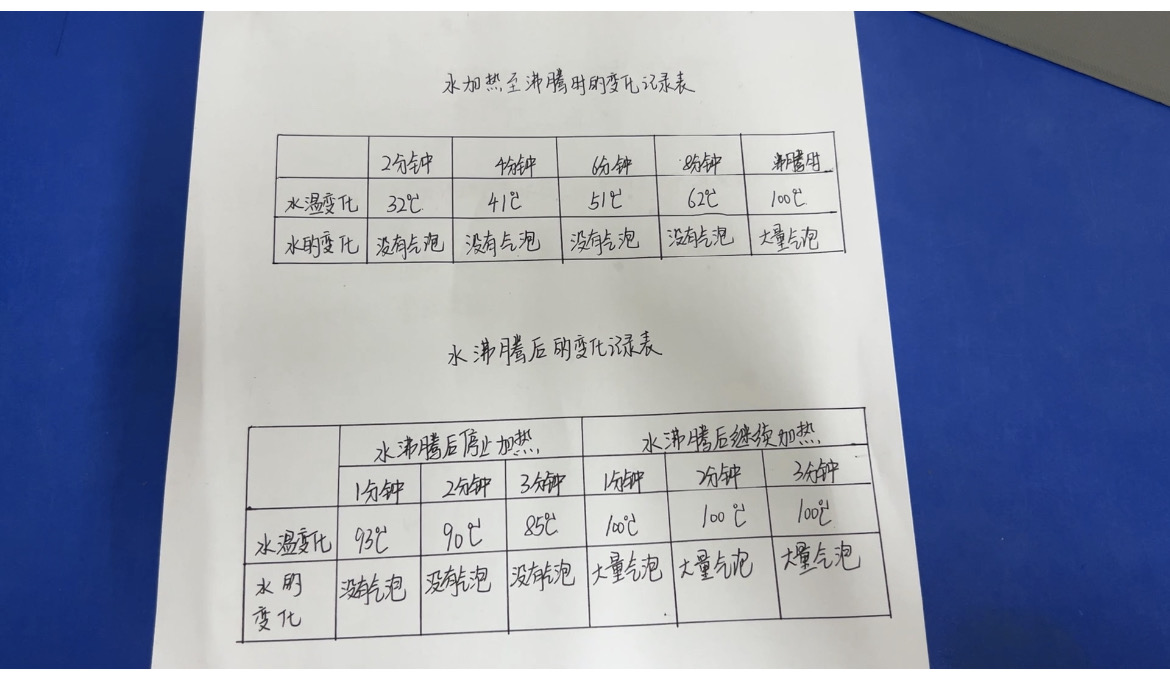 水加热至沸腾时的变化记录表
2分钟 4分钟 6分钟 8分钟 沸腾时
水温变化 32℃ 41℃ 51℃ 62℃ 100℃
水的变化 没有气泡 没有气泡 没有气泡 没有气泡 大量气泡
水沸腾后的变化记录表
水沸腾后停止加热 水沸腾后继续加热
1分钟 2分钟 3分钟 1分钟 2分钟 3分钟
水温变化 93℃ 90℃ 85℃ 100℃ 100℃ 100℃
水的 没有气泡 没有气泡 没有气泡 大量气泡 大量气泡 大量气泡
变化